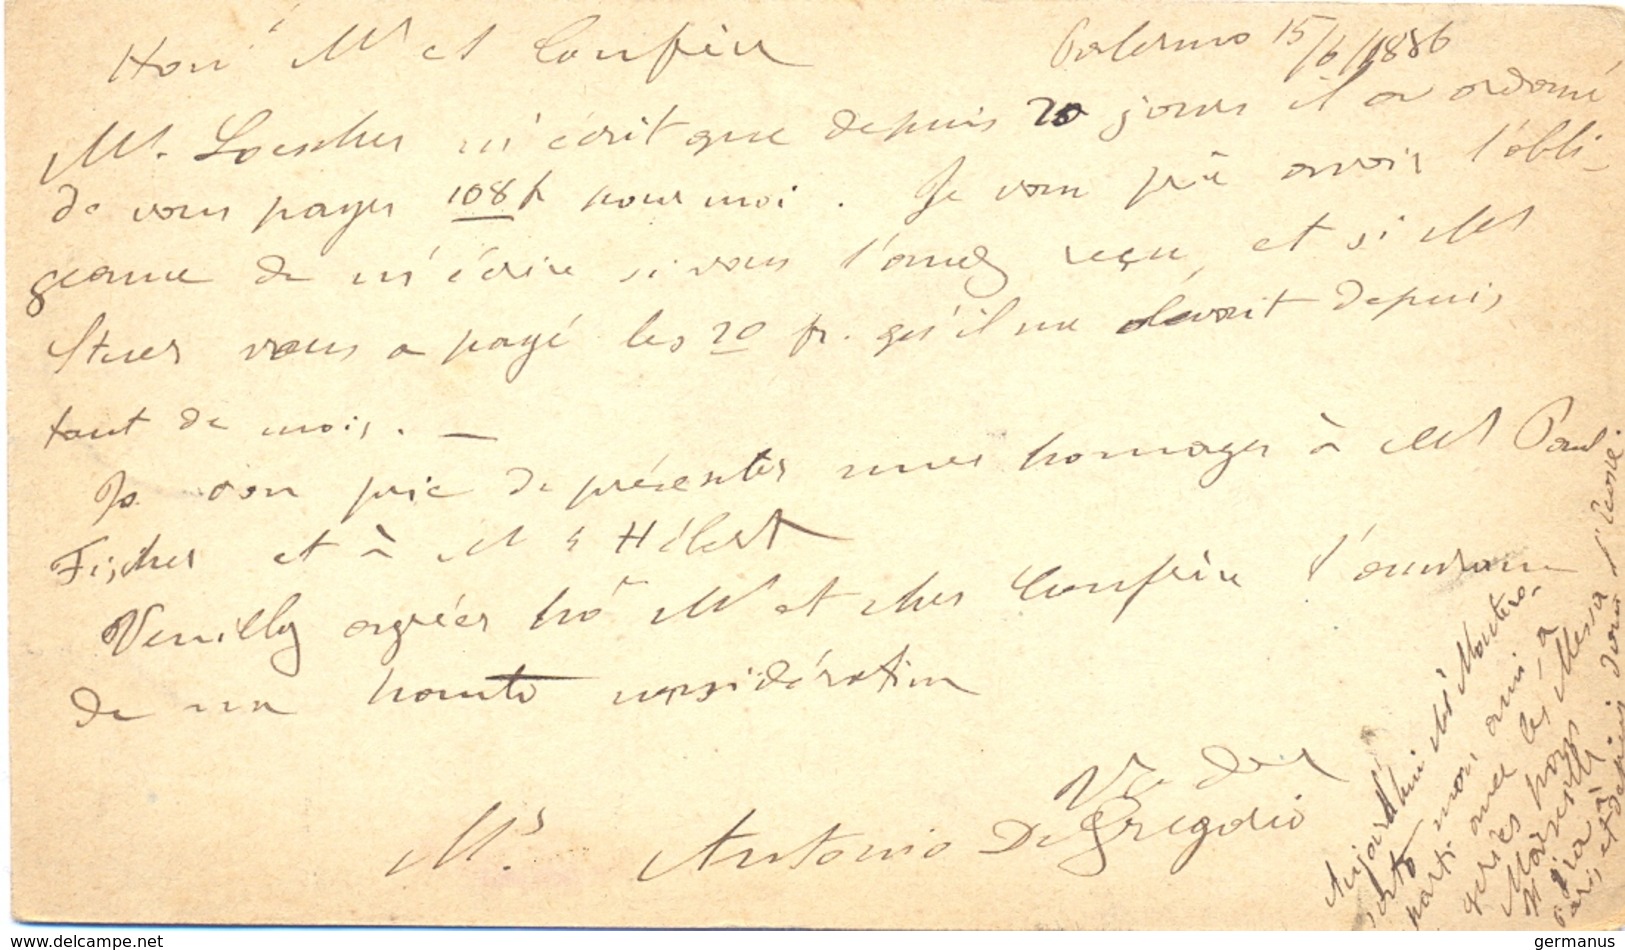 Palermo 15/6/1886
Hon^é M^r et Confrère
M^r. Loescher m'écrit que depuis 20 jours il a ordonné
de vous payer 108 f pour moi. Je vous prie avoir l'obli-
geance de m'écrire si vous l'avez reçu, et si M^r
Stuer vous a payé les 20 fr. qu'il me devait depuis
tant de mois. —
Je vous prie de présenter mes hommages à M^r Paul
Fischer et à M^r Hébert
Veuillez agréer ho^é M^r et cher Confrère l'assurance
de ma haute considération
V. dev
M^is. Antonio De Gregorio
Aujourd'hui M^r Montero-
sato mon ami a
parti avec les Messa
geries pour
Marseille
Il ira à
Paris, et depuis dans